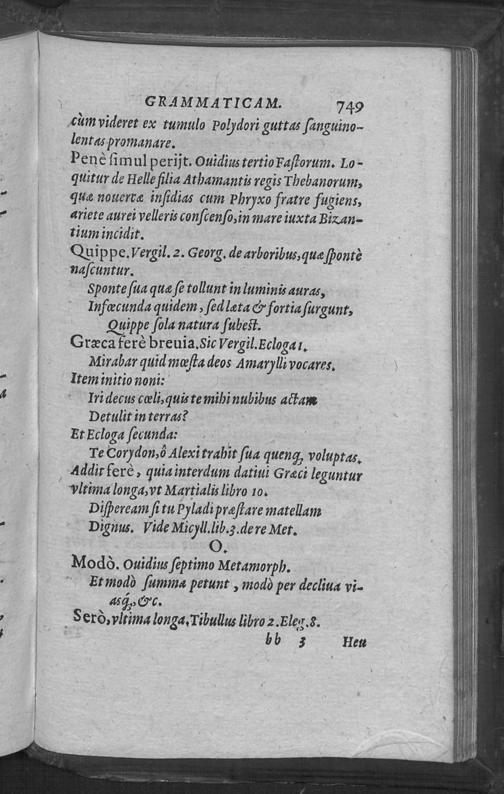 GRAMMATICAM. 749
cùm videret ex tumulo Polydori guttas ſanguino-
lentas promanare.
Penè ſimul perijt. Ouidius tertio Faſtorum. Lo-
quitur de Helle filia Athamantis regis Thebanorum,
quæ nouercæ inſidias cum Phryxo fratre fugiens,
ariete aurei velleris conſcenſo, in mare iuxta Bizan-
tium incidit.
Quippe. Vergil. 2. Georg. de arboribus, quæ ſpontè
naſcuntur.
Sponte ſua quæ ſe tollunt in luminis auras,
Infœcunda quidem, ſed læta & fortia ſurgunt,
Quippe ſola natura ſubeſt.
Græca ferè breuia. Sic Vergil. Ecloga 1.
Mirabar quid mœſta deos Amarylli vocares.
Item initio noni:
Iri decus cœli, quis te mihi nubibus actam
Detulit in terras?
Et Ecloga ſecunda:
Te Corydon, ô Alexi trahit ſua quenq; voluptas.
Addit ferè, quia interdum datiui Græci leguntur
vltima longa, vt Martialis libro 10.
Diſpeream ſi tu Pyladi præſtare matellam
Dignus. Vide Micyll. lib. 3. de re Met.
O.
Modò. Ouidius ſeptimo Metamorph.
Et modò ſumma petunt, modò per decliua vi-
asq́;, &c.
Serò, vltima longa, Tibullus libro 2. Eleg. 8.
bb 3 Heu